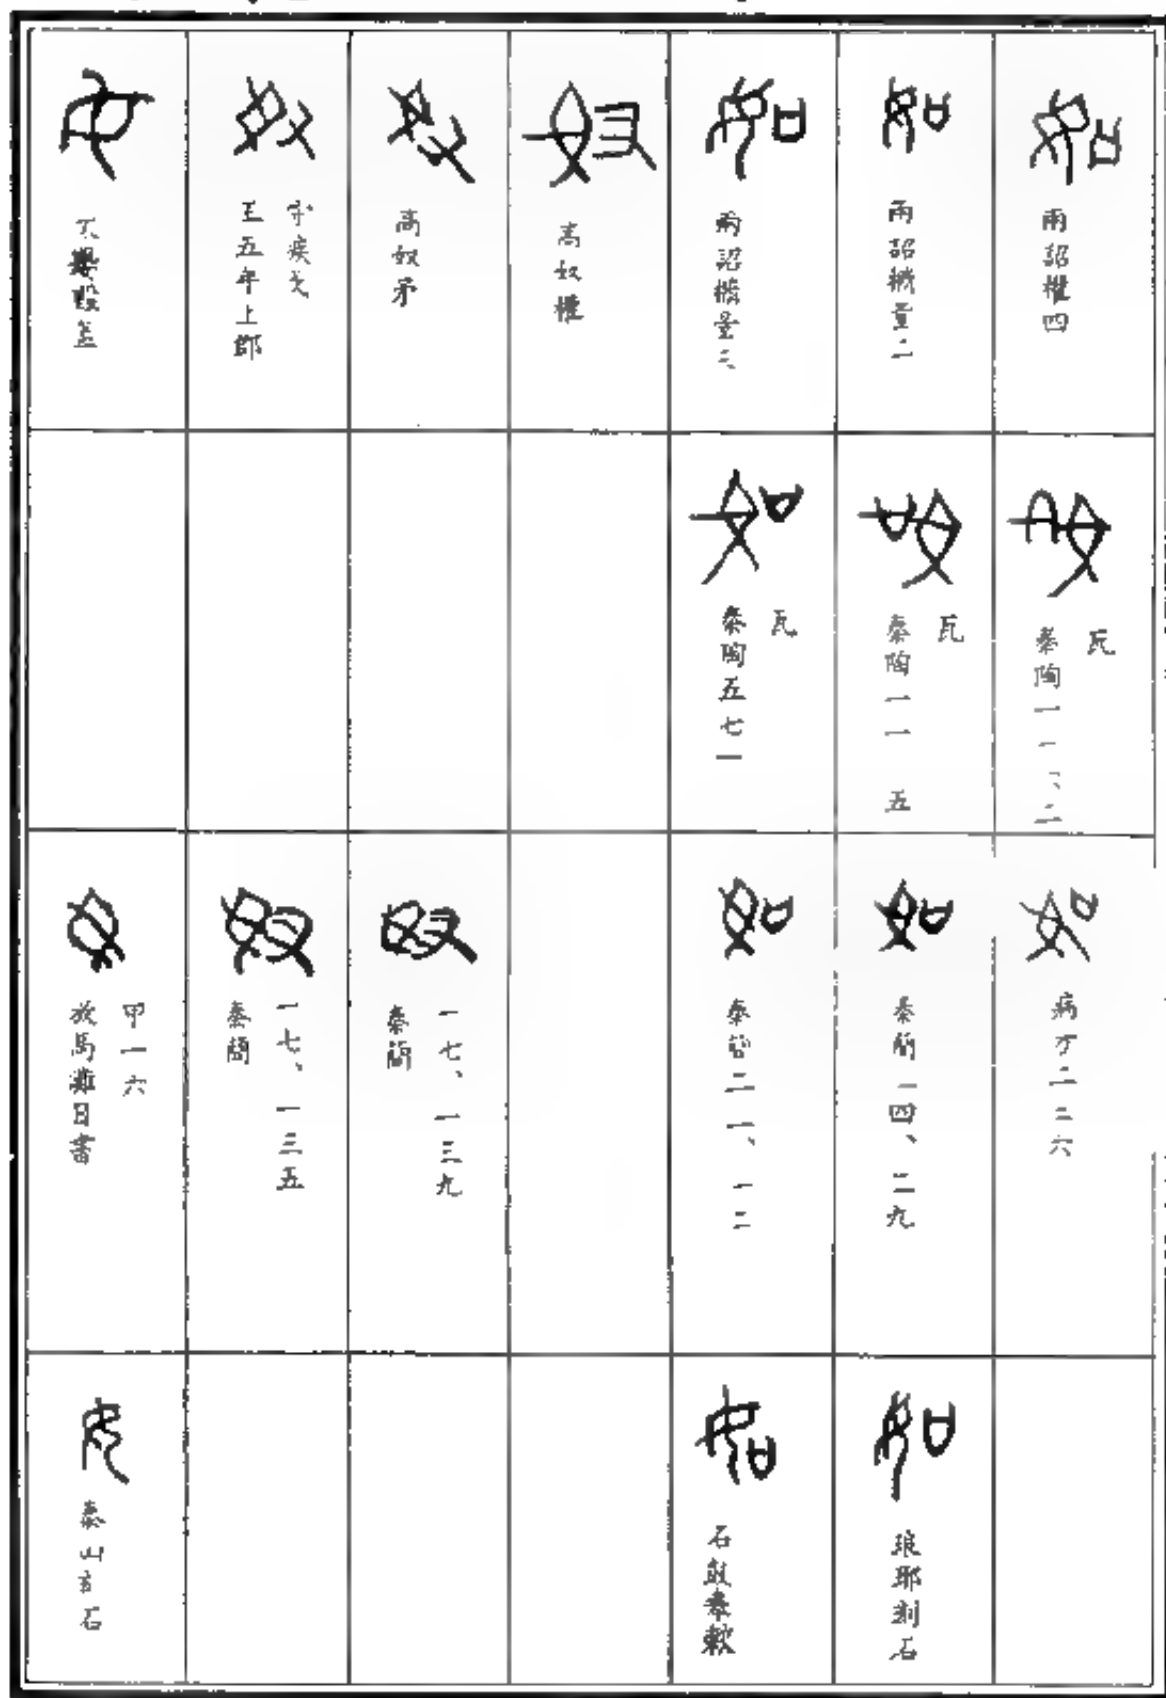 如
兩詔權四
如
兩詔橢量二
如
兩詔橢量三
奴
高奴權
奴
高奴矛
奴
王五年上郡
守疾戈
如
瓦
如
秦陶一一五
瓦
如
秦陶五七一
瓦
如
病方二三六
如
秦簡一四、二九
如
秦簡二一、一二
奴
秦簡
一七、一三九
奴
秦簡
一七、一三五
放馬灘日書
甲一六
如
琅邪刻石
如
石鼓奉敕
泰山刻石